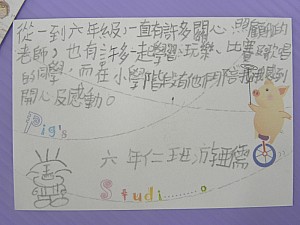 從一到六年級，一直有許多關心、照顧我的
老師，也有許多一起學習、玩樂、比賽、歡唱
的同學，而在小學階段有他們陪我感到
開心及感動。
Pig's
六年仁班 游
Studi.......o